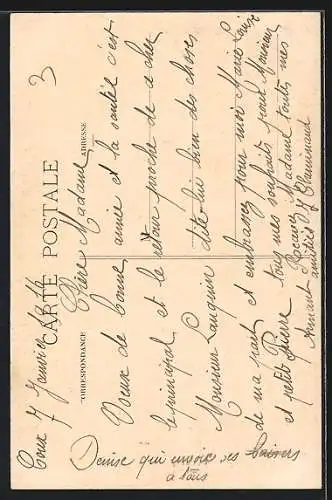 3
CARTE POSTALE
CORRESPONDANCE
ADRESSE
7 Janvier 1916
Chère Madame,
Voeux de bonne année et la santée c'est
le principal et le retour proche de ce cher
Monsieur Languin dite lui bien des choses
de ma part et embrassez pour moi Marie Louise
et petit Pierre tous mes souhaits pour Monsieur
Recevez Madame toutes mes
amitiées
Armant
Denise qui envoie ses baisers
a tous